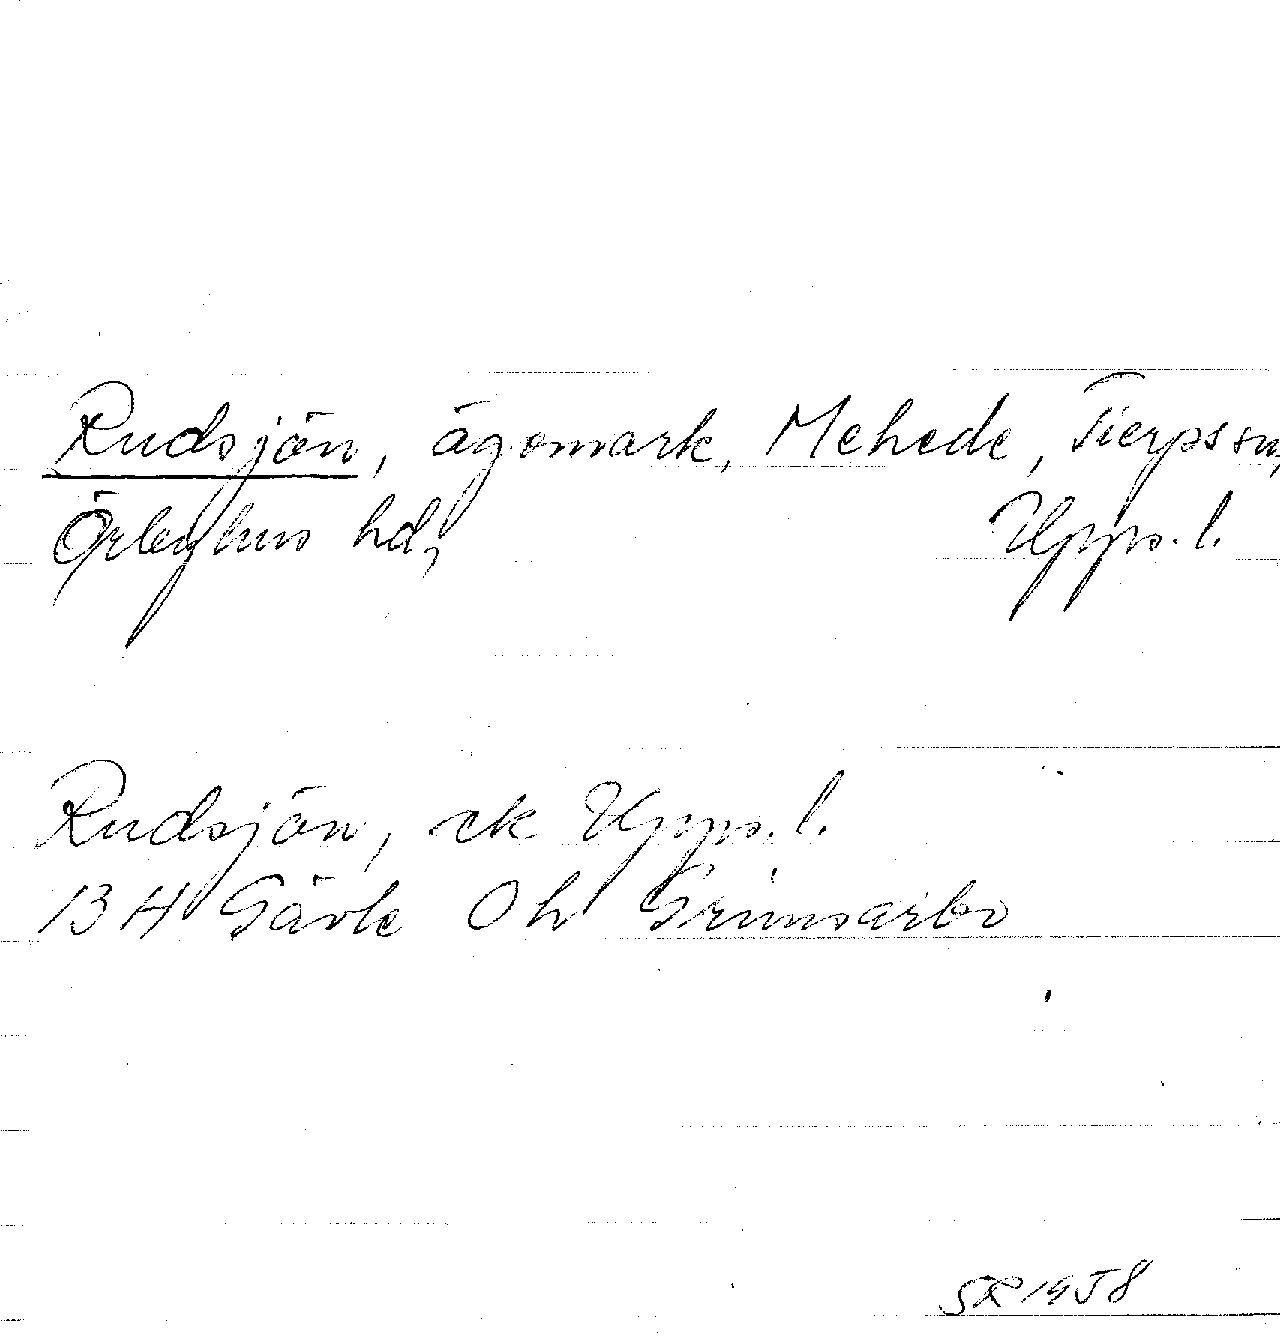 Rudsjön, ägomark, Mehede, Tierps sn,
Örbyhus hd, Upps. l.
Rudsjön, ek Upps. l.
13 H Gävle Oh Grimsarbo
SR 1958